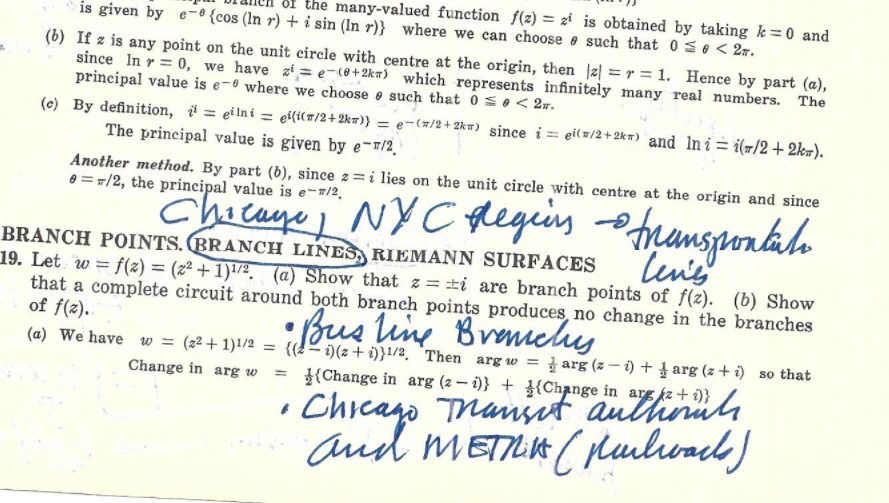 of the many-valued function f(z) = zⁱ is obtained by taking k = 0 and
is given by e^−θ {cos (ln r) + i sin (ln r)} where we can choose θ such that 0 ≦ θ < 2π.
(b) If z is any point on the unit circle with centre at the origin, then |z| = r = 1. Hence by part (a),
since ln r = 0, we have zⁱ = e^−(θ+2kπ) which represents infinitely many real numbers. The
principal value is e^−θ where we choose θ such that 0 ≦ θ < 2π.
(c) By definition, iⁱ = e^{i ln i} = e^{i{i(π/2+2kπ)}} = e^−(π/2+2kπ) since i = e^{i(π/2+2kπ)} and ln i = i(π/2 + 2kπ).
The principal value is given by e^−π/2.
Another method. By part (b), since z = i lies on the unit circle with centre at the origin and since
θ = π/2, the principal value is e^−π/2.
Chicago, NYC → transportation
lines
BRANCH POINTS. BRANCH LINES, RIEMANN SURFACES
19. Let w = f(z) = (z² + 1)^1/2. (a) Show that z = ±i are branch points of f(z). (b) Show
that a complete circuit around both branch points produces no change in the branches
of f(z).
• Bus line Branches
(a) We have w = (z² + 1)^1/2 = {(z − i)(z + i)}^1/2. Then arg w = ½ arg (z − i) + ½ arg (z + i) so that
Change in arg w = ½{Change in arg (z − i)} + ½{Change in arg (z + i)}
• Chicago Transit authority
and METRA (railroads)